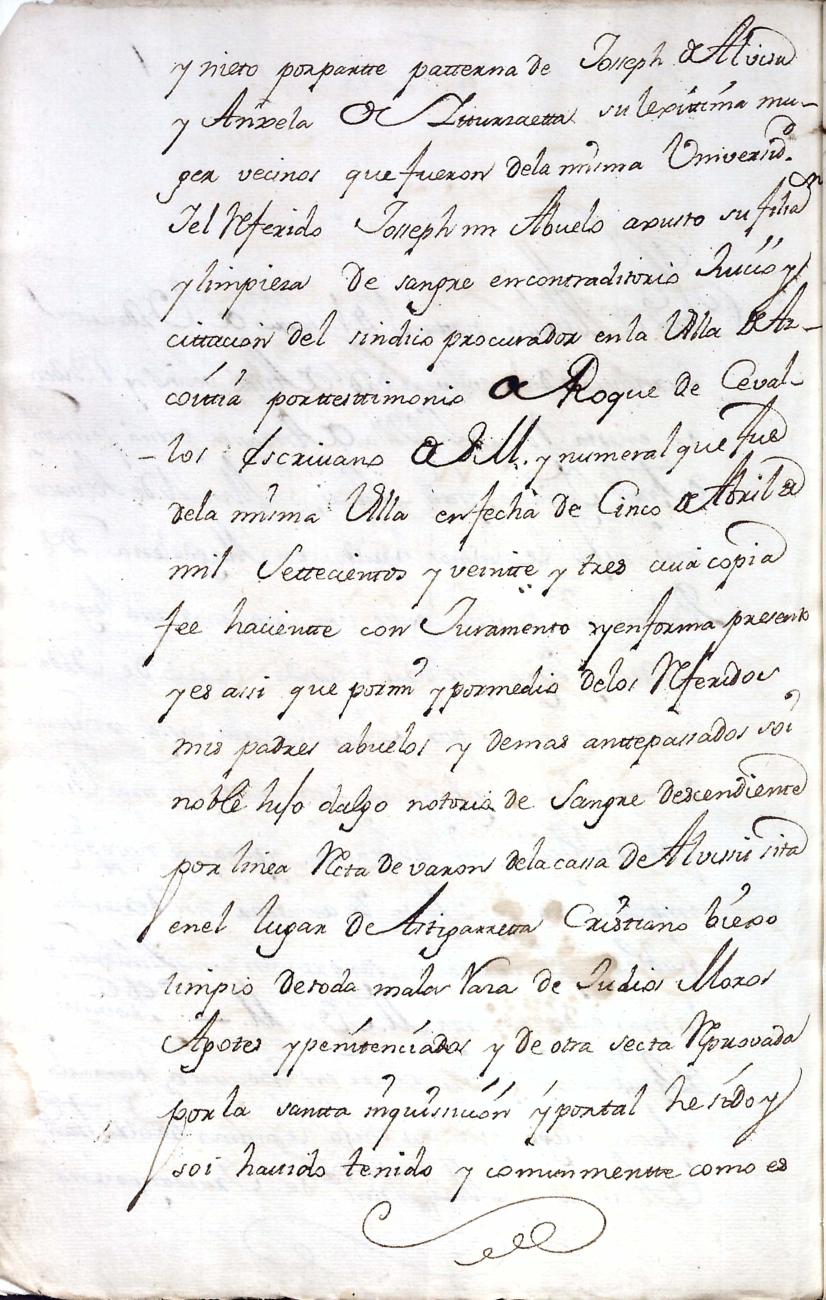 y nieto porpartte patterna de Josseph de Alvisu
y Anxela de Itturraetta su lexittima mu-
ger vecinos que fueron dela misma Universidd.
Jel Referido Josseph mi Abuelo avusto su filiaon
y limpieza de sangre encontraditorio Juicio y
cittacion del sindico procurador enla Villa de Az-
coittia porttesttimonio de Roque de Ceval-
-los Escrivano de S.M. y numeral que fue
dela misma Villa enfecha de Cinco de Abril de
mil Settecientos y veintte y tres cuia copia
fee hacientte con Juramento y enforma presento
y es assi que pormi y pormedio delos Referidos
mis padres abuelos y demas anttepassados soi
noble hijo dalgo notorio de Sangre descendiente
por linea Recta de varon dela cassa de Alvissu sita
enel lugar de Astigarretta Cristiano biexo
limpio detoda mala Raza de Judios Moros
Agotes y penitenciados y de otra secta Reprovada
por la santta inquisicion y portal he sido y
soi havido tenido y comunmentte como es